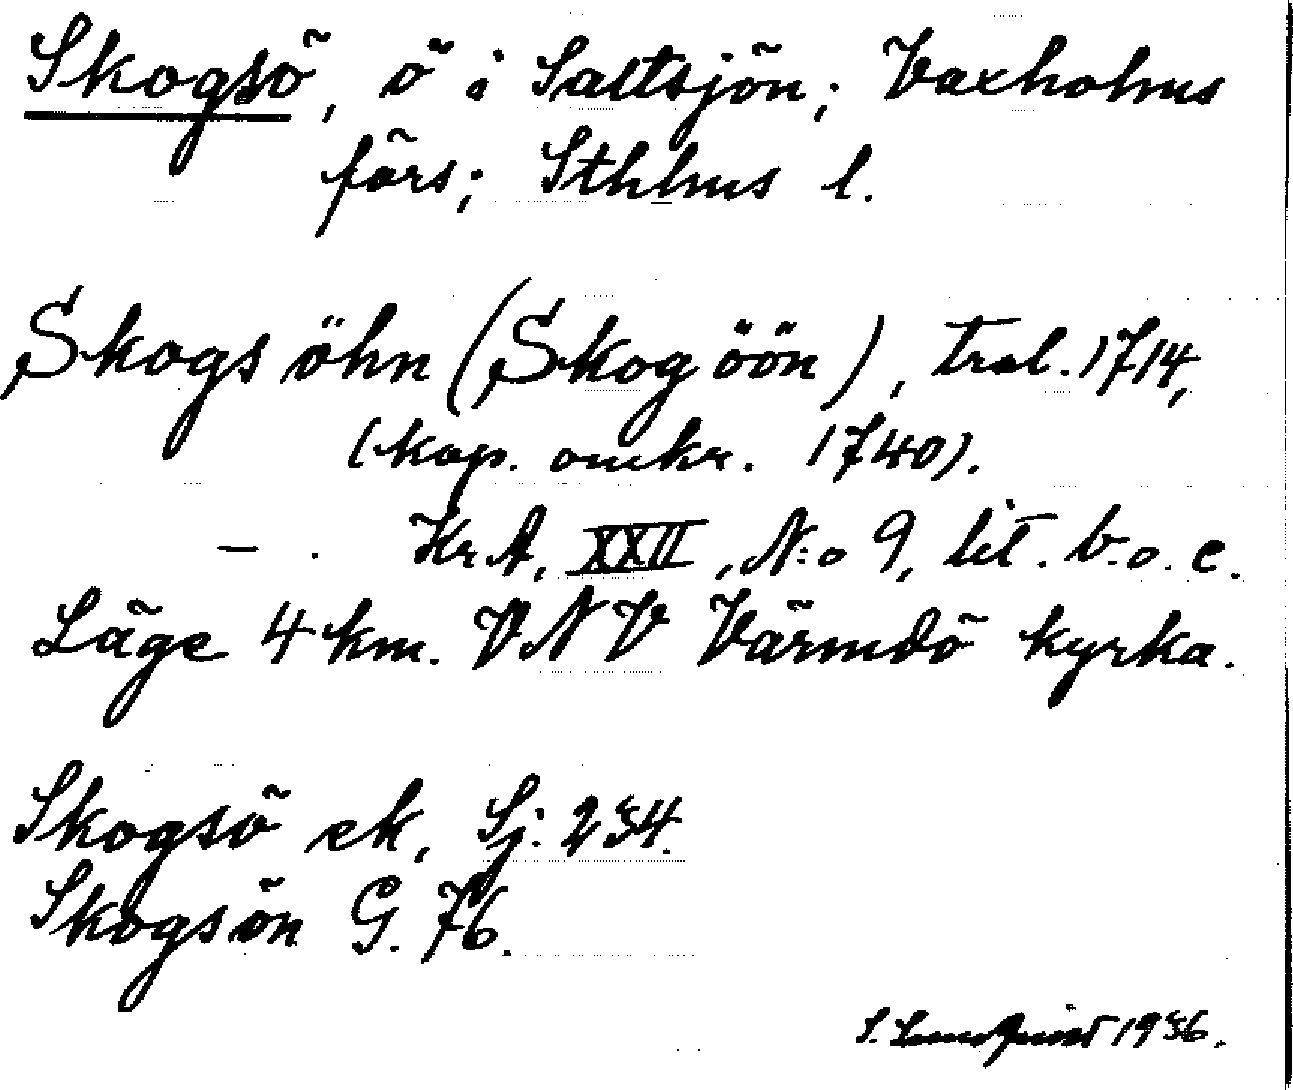 Skogsö, ö i Saltsjön; Vaxholms
förs; Sthlms l.
Skogs öhn (Skog öön), tral. 1714,
(kop. omkr. 1740).
— . KrA, XXII, N:o 9, lit. b. o. c.
Läge 4 km. VNV Värmdö kyrka.
Skogsö ek, Sj. 234.
Skogsön G. 76.
S. Lundquist 1936.